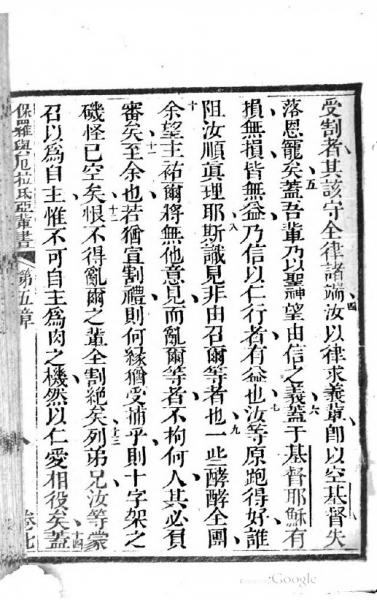 受割者其該守全律諸端四汝以律求義輩即以空基督失
落恩寵矣五蓋吾輩乃以聖神望由信之義六蓋于基督耶穌有
損無損皆無益乃信以仁行者有益也七汝等原跑得好誰
阻汝順真理耶八斯識見非由召爾等者也九一些酵酵全團
十余望主祐爾將無他意見而亂爾等者不拘何人其必負
審矣十一至余也若猶宣割禮則何緣猶受捕乎則十字架之
磯怪已空矣十二恨不得亂爾之輩全割絕矣十三列弟兄汝等蒙
召以為自主惟不可自主為肉之機然以仁愛相役矣十四蓋
保羅與厄拉氐亞輩書 第五章 七
Google